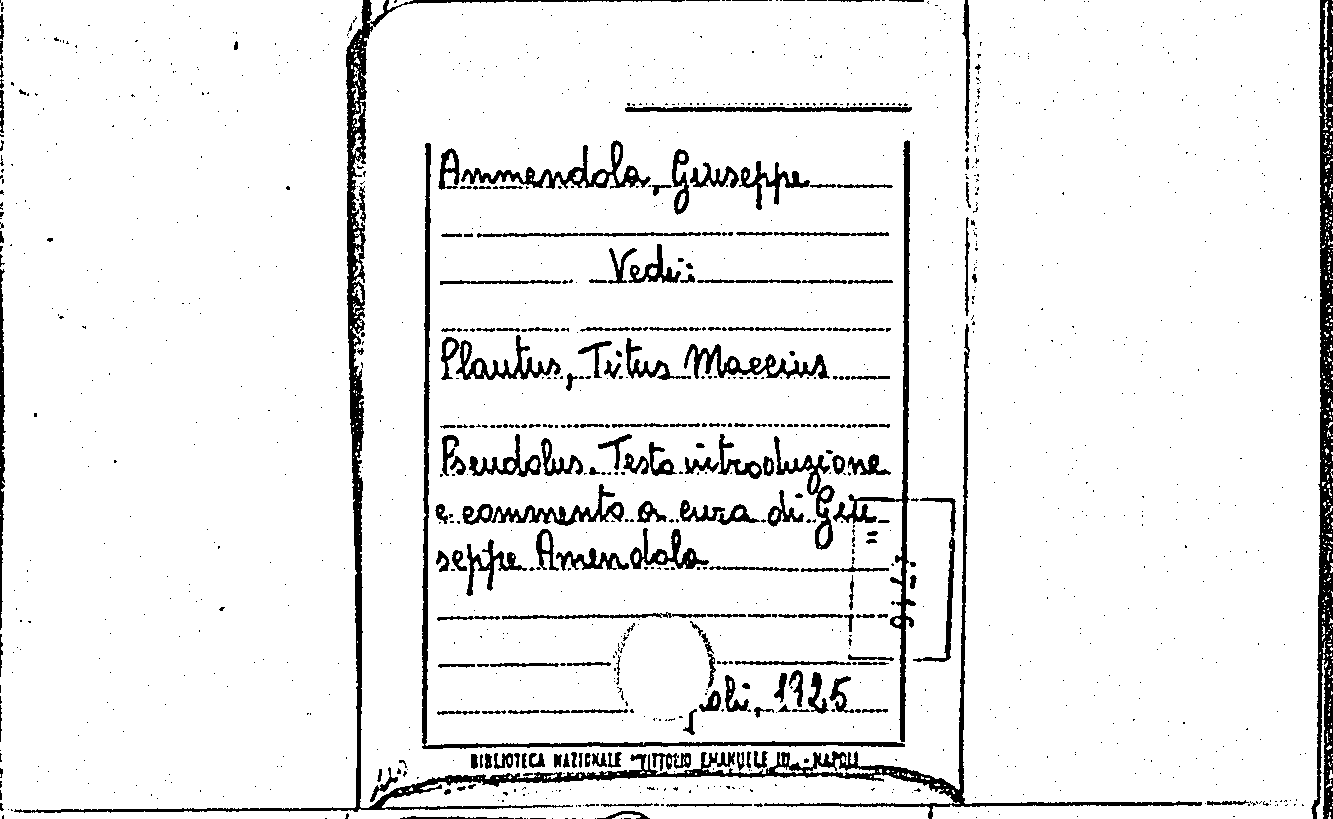 Ammendola, Giuseppe
Vedi:
Plautus, Titus Maccius
Pseudolus. Testo introduzione
e commento a cura di Giu
=
seppe Amendola
oli, 1925
BIBLIOTECA NAZIONALE "VITTORIO EMANUELE III" - NAPOLI